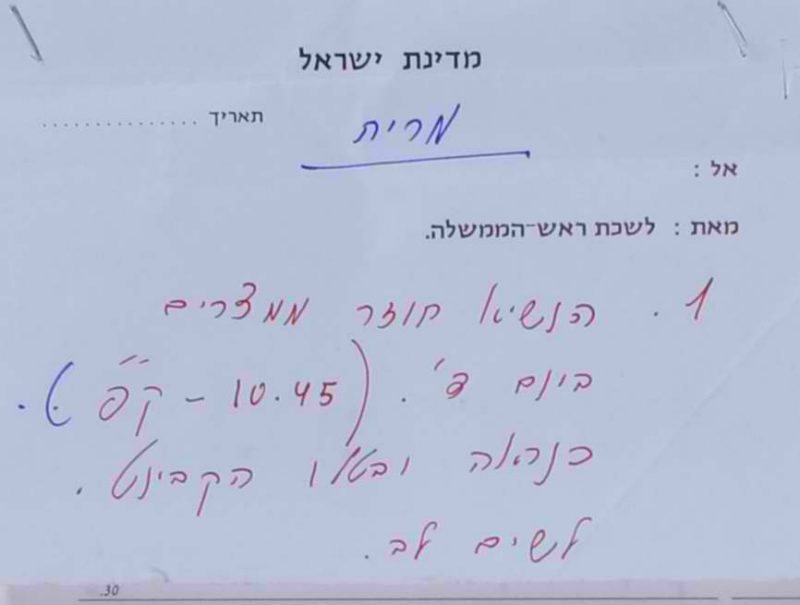 מדינת ישראל
תאריך ...............
מרית
אל :
מאת : לשכת ראש-הממשלה.
1. הנשיא חוזר ממצרים
ביום ד'. (10.45 -
כנראה הקבינט.
לשים לב.
30.